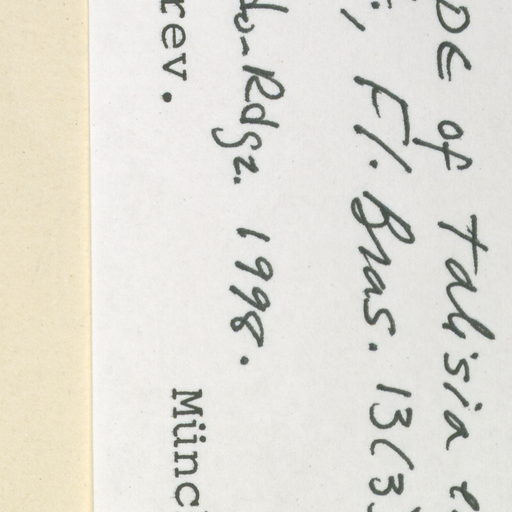 of Talisia
Fl. Bras. 13(3)
Rdgz. 1998.
rev. Münc